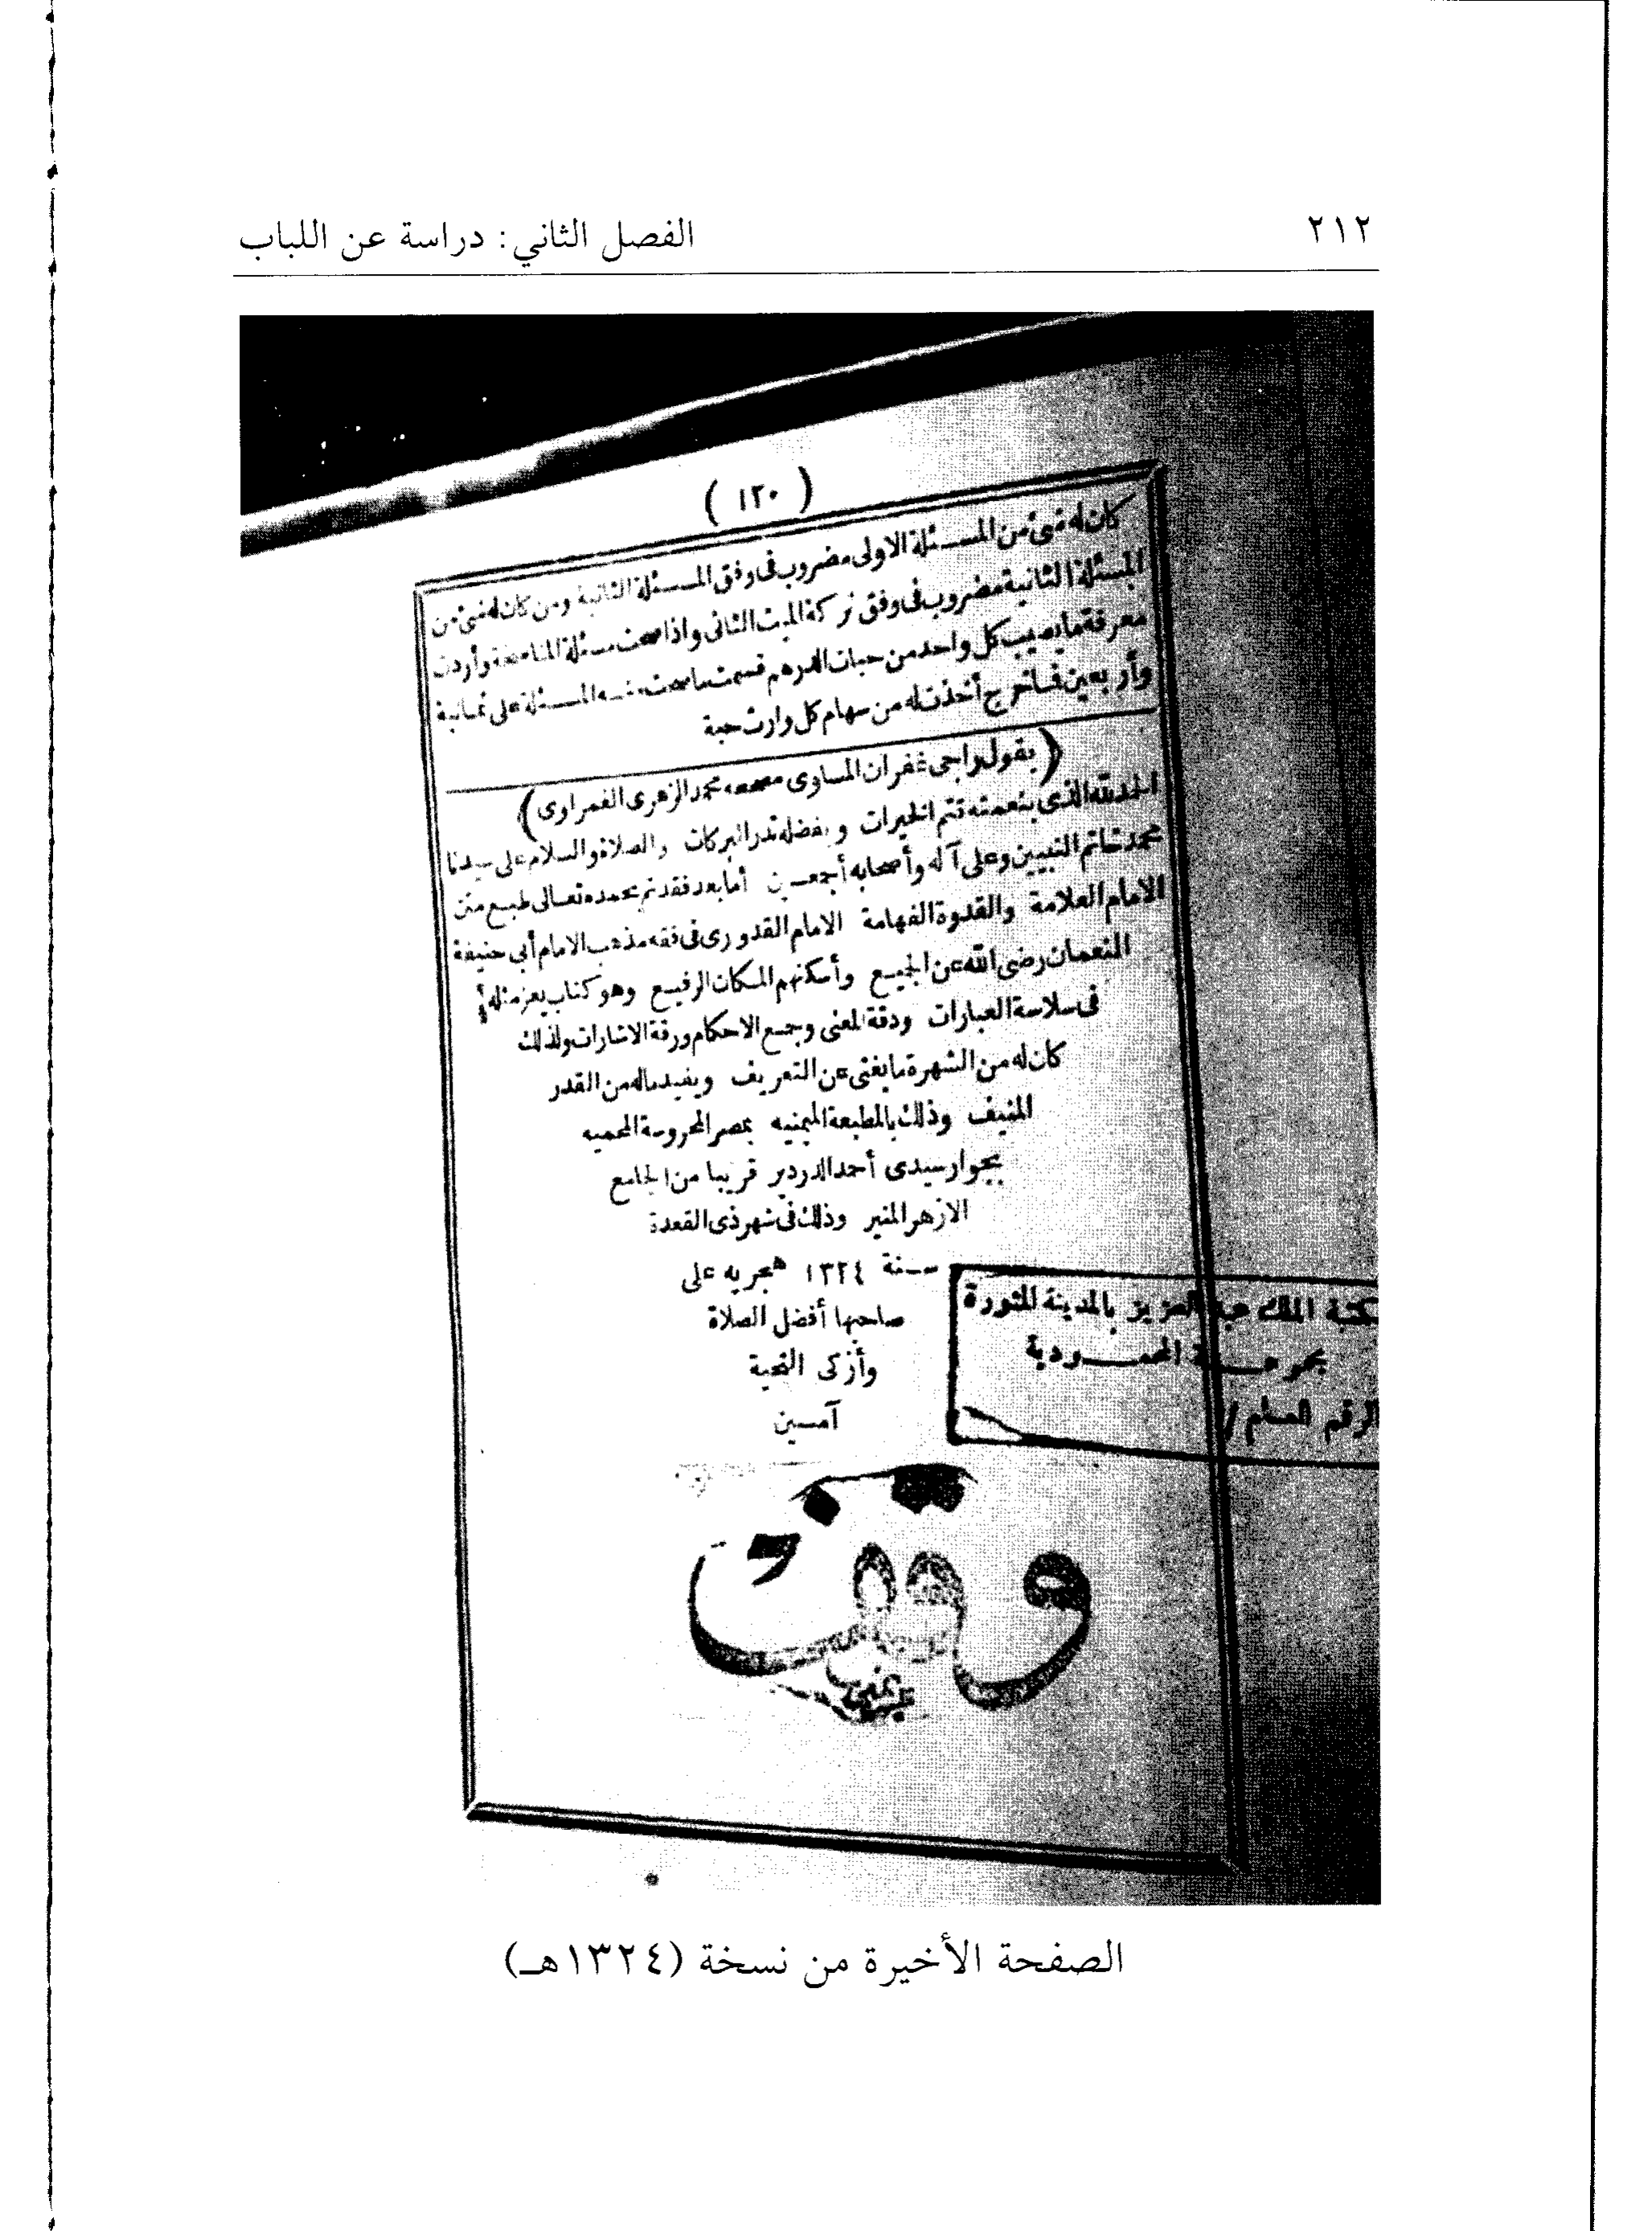 ٢١٢
الفصل الثاني: دراسة عن اللباب
( ١٢٠ )
كان له شئ من المسئلة الاولى مضروب فى وفق المسئلة الثانية ومن كان له شئ من
المسئلة الثانية مضروب فى وفق تركة الميت الثانى واذا صحت مسئلة المناسخة وأردت
معرفة ما يصيب كل واحد من حبات الدرهم قسمت ما صحت منه المسئلة على ثمانية
وأربعين فما خرج أخذت له من سهام كل وارث حبة
﴿ يقول راجى غفران المساوى مصححه محمد الزهرى الغمراوى ﴾
الحمد لله الذى بنعمته تتم الخيرات وبفضله تدر البركات والصلاة والسلام على سيدنا
محمد خاتم النبيين وعلى آله وأصحابه أجمعين أما بعد فقد تم بحمده تعالى طبع متن
الامام العلامة والقدوة الفهامة الامام القدورى فى فقه مذهب الامام أبى حنيفة
النعمان رضى الله عن الجميع وأسكنهم المكان الرفيع وهو كتاب يعز مثله
فى سلاسة العبارات ودقة المعنى وجمع الاحكام ورقة الاشارات ولذلك
كان له من الشهرة ما يغنى عن التعريف ويفيد ماله من القدر
المنيف وذلك بالمطبعة الميمنيه بمصر المحروسة المحميه
بجوار سيدى أحمد الدردير قريبا من الجامع
الازهر المنير وذلك فى شهر ذى القعدة
سنة ١٣٢٤ هجريه على
صاحبها أفضل الصلاة
وأزكى التحية
آمين
مكتبة الملك عبد العزيز بالمدينة المنورة
مجموعة المحمودية
الرقم العام /
وقف
الصفحة الأخيرة من نسخة (١٣٢٤هـ)